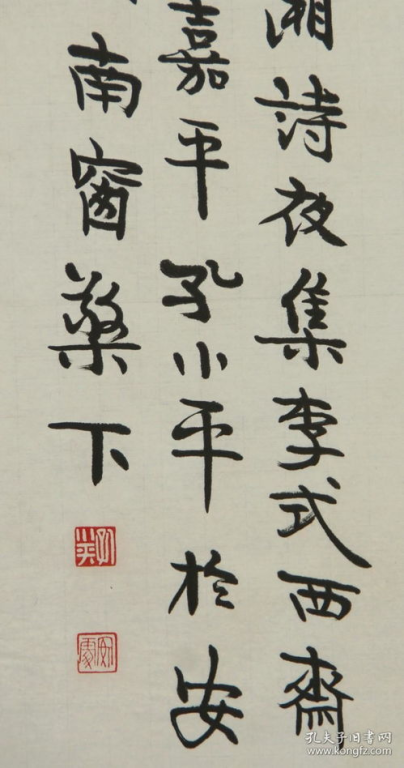 湘詩夜集李式西齋
嘉平孔小平於安
南窗檠下
孔夫子旧书网
www.kongfz.com